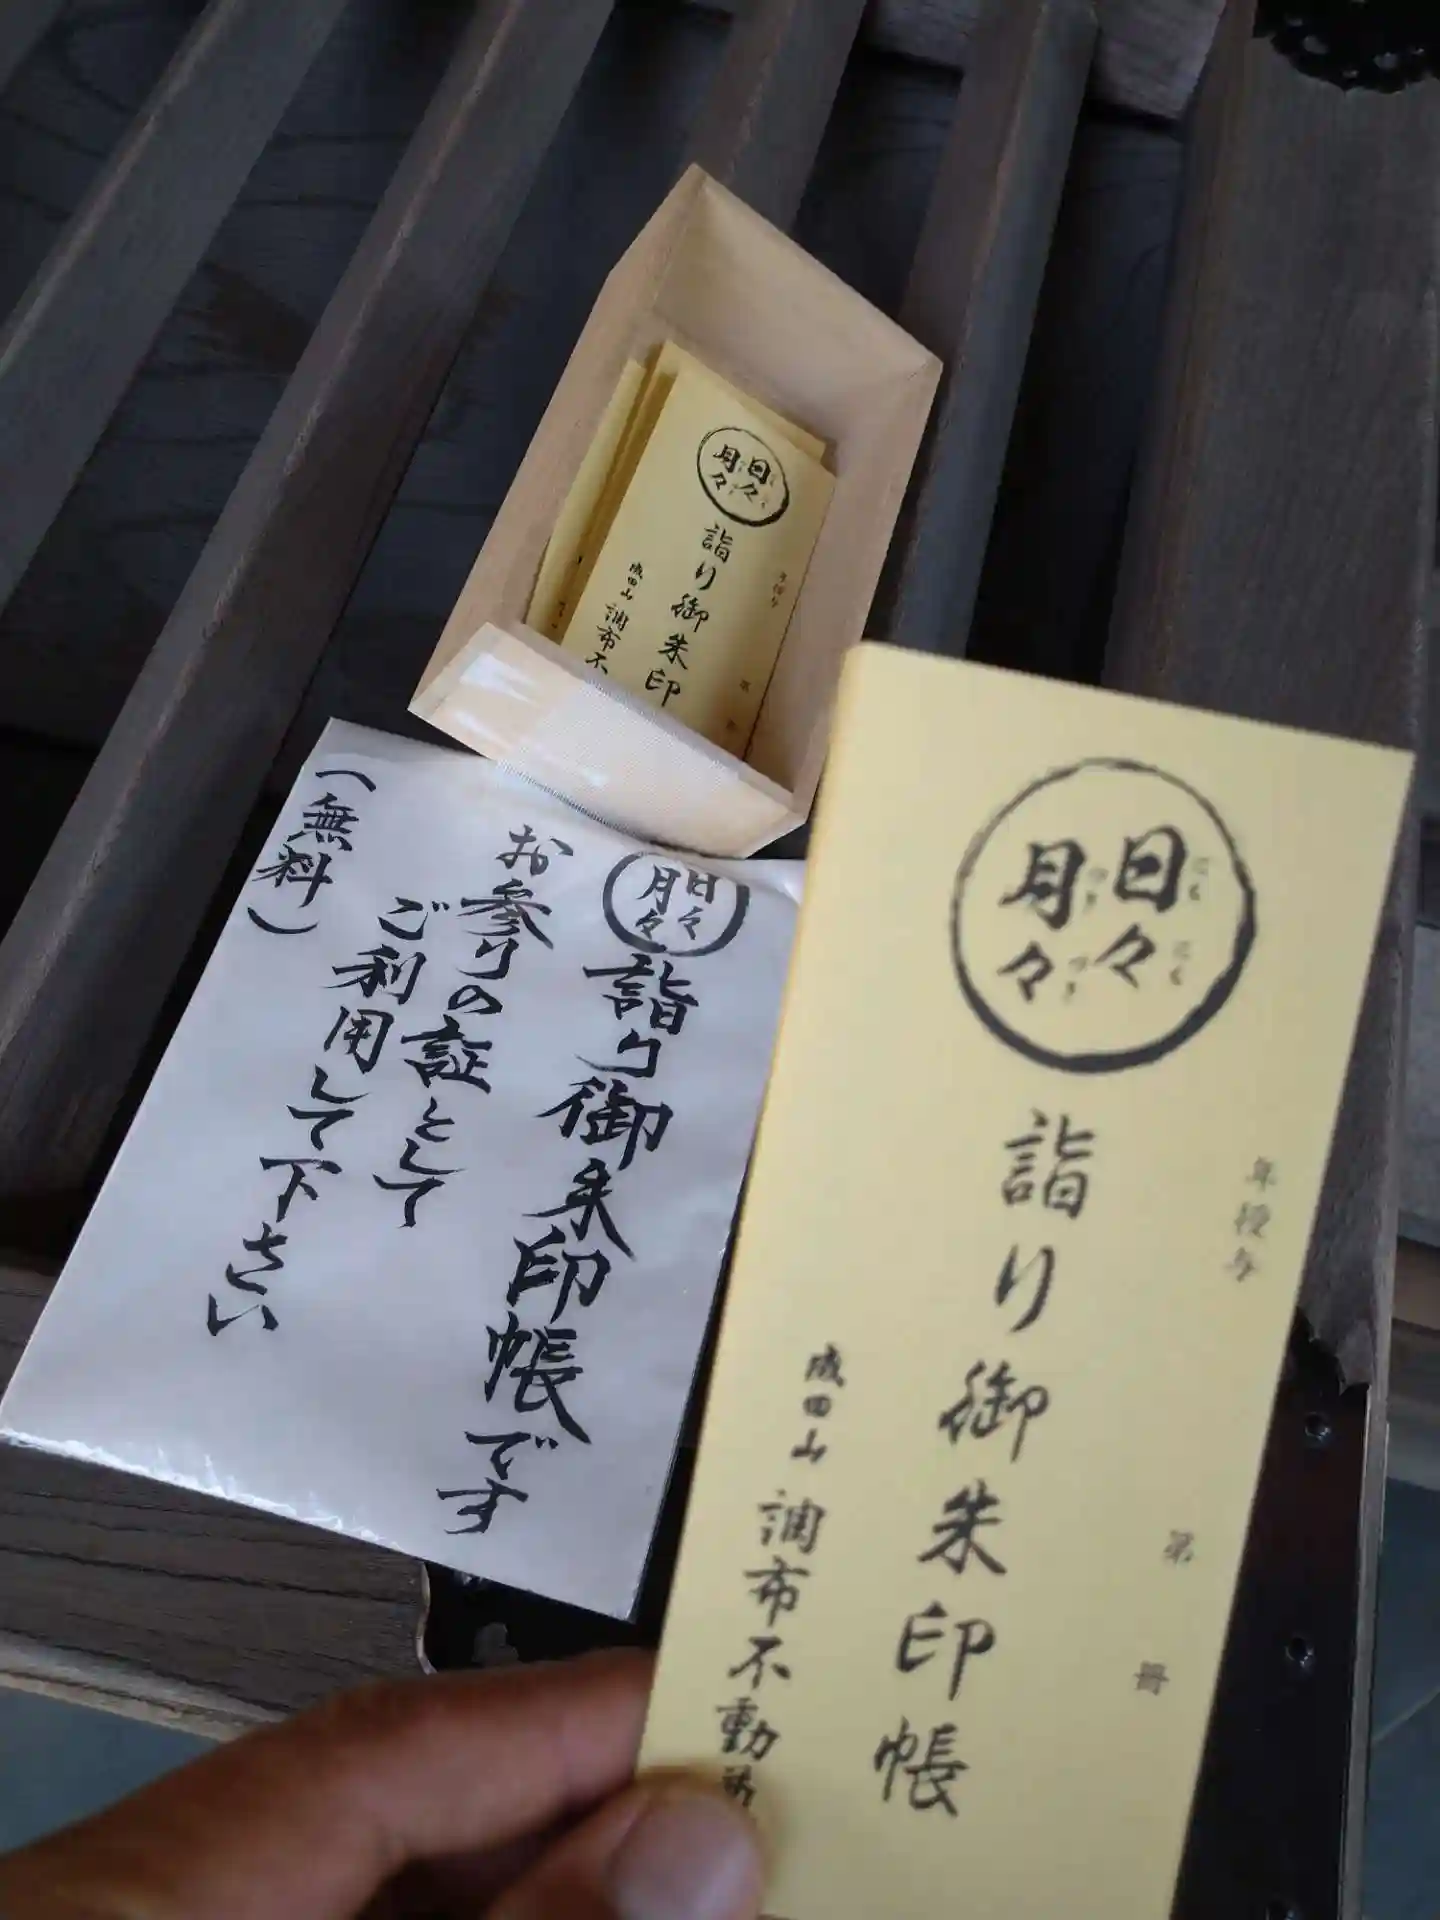 日々
月々
詣り御朱印
成田山
調布不
日々
月々
詣り御朱印帳です
お参りの証として
ご利用して下さい
(無料)
年授与
第
冊
日々
月々
詣り御朱印帳
成田山
調布不動